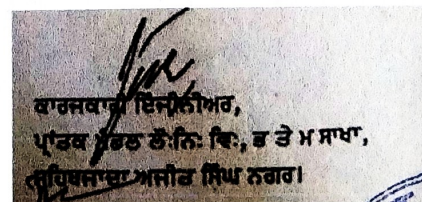 ਕਾਰਜਕਾਰੀ ਇੰਜੀਨੀਅਰ,
ਪ੍ਰਾਂਤਕ ਮੰਡਲ ਲੋ:ਨਿ: ਵਿ:, ਭ ਤੇ ਮ ਸਾਖਾ,
ਸਾਹਿਬਜਾਦਾ ਅਜੀਤ ਸਿੰਘ ਨਗਰ।